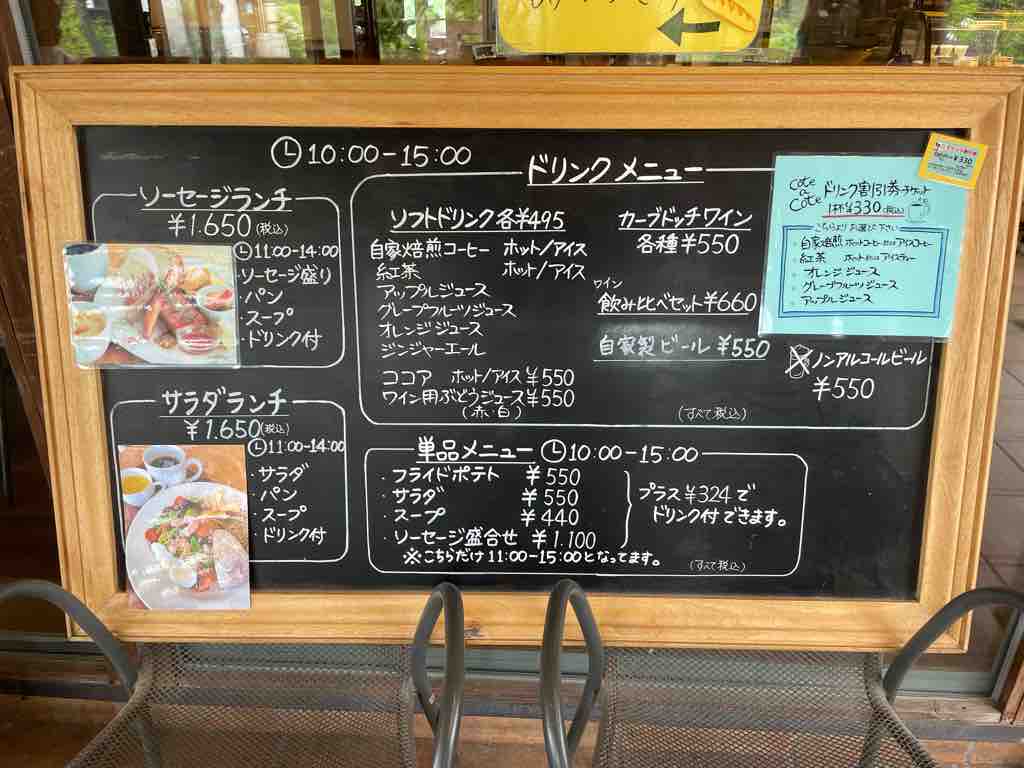 10:00-15:00
ソーセージランチ
¥1.650(税込)
11:00-14:00
・ソーセージ盛り
・パン
・スープ
・ドリンク付
サラダランチ
¥1.650(税込)
11:00-14:00
・サラダ
・パン
・スープ
・ドリンク付
ドリンクメニュー
ソフトドリンク各¥495
自家焙煎コーヒー ホット/アイス
紅茶 ホット/アイス
アップルジュース
グレープフルーツジュース
オレンジジュース
ジンジャーエール
ココア ホット/アイス ¥550
ワイン用ぶどうジュース¥550
(赤・白)
カーブドッチワイン
各種¥550
ワイン
飲み比べセット¥660
自家製ビール ¥550
ノンアルコールビール
¥550
(すべて税込)
cote a cote
ドリンク割引券チケット
1杯¥330(税込)
こちらよりお選び下さい
・自家焙煎ホットコーヒーまたはアイスコーヒー
・紅茶 ホットまたはアイスティー
・オレンジジュース
・グレープフルーツジュース
・アップルジュース
¥330
単品メニュー 10:00-15:00
・フライドポテト ¥550
・サラダ ¥550
・スープ ¥440
・ソーセージ盛合せ ¥1.100
※こちらだけ11:00-15:00となってます。
プラス¥324で
ドリンク付できます。
(すべて税込)